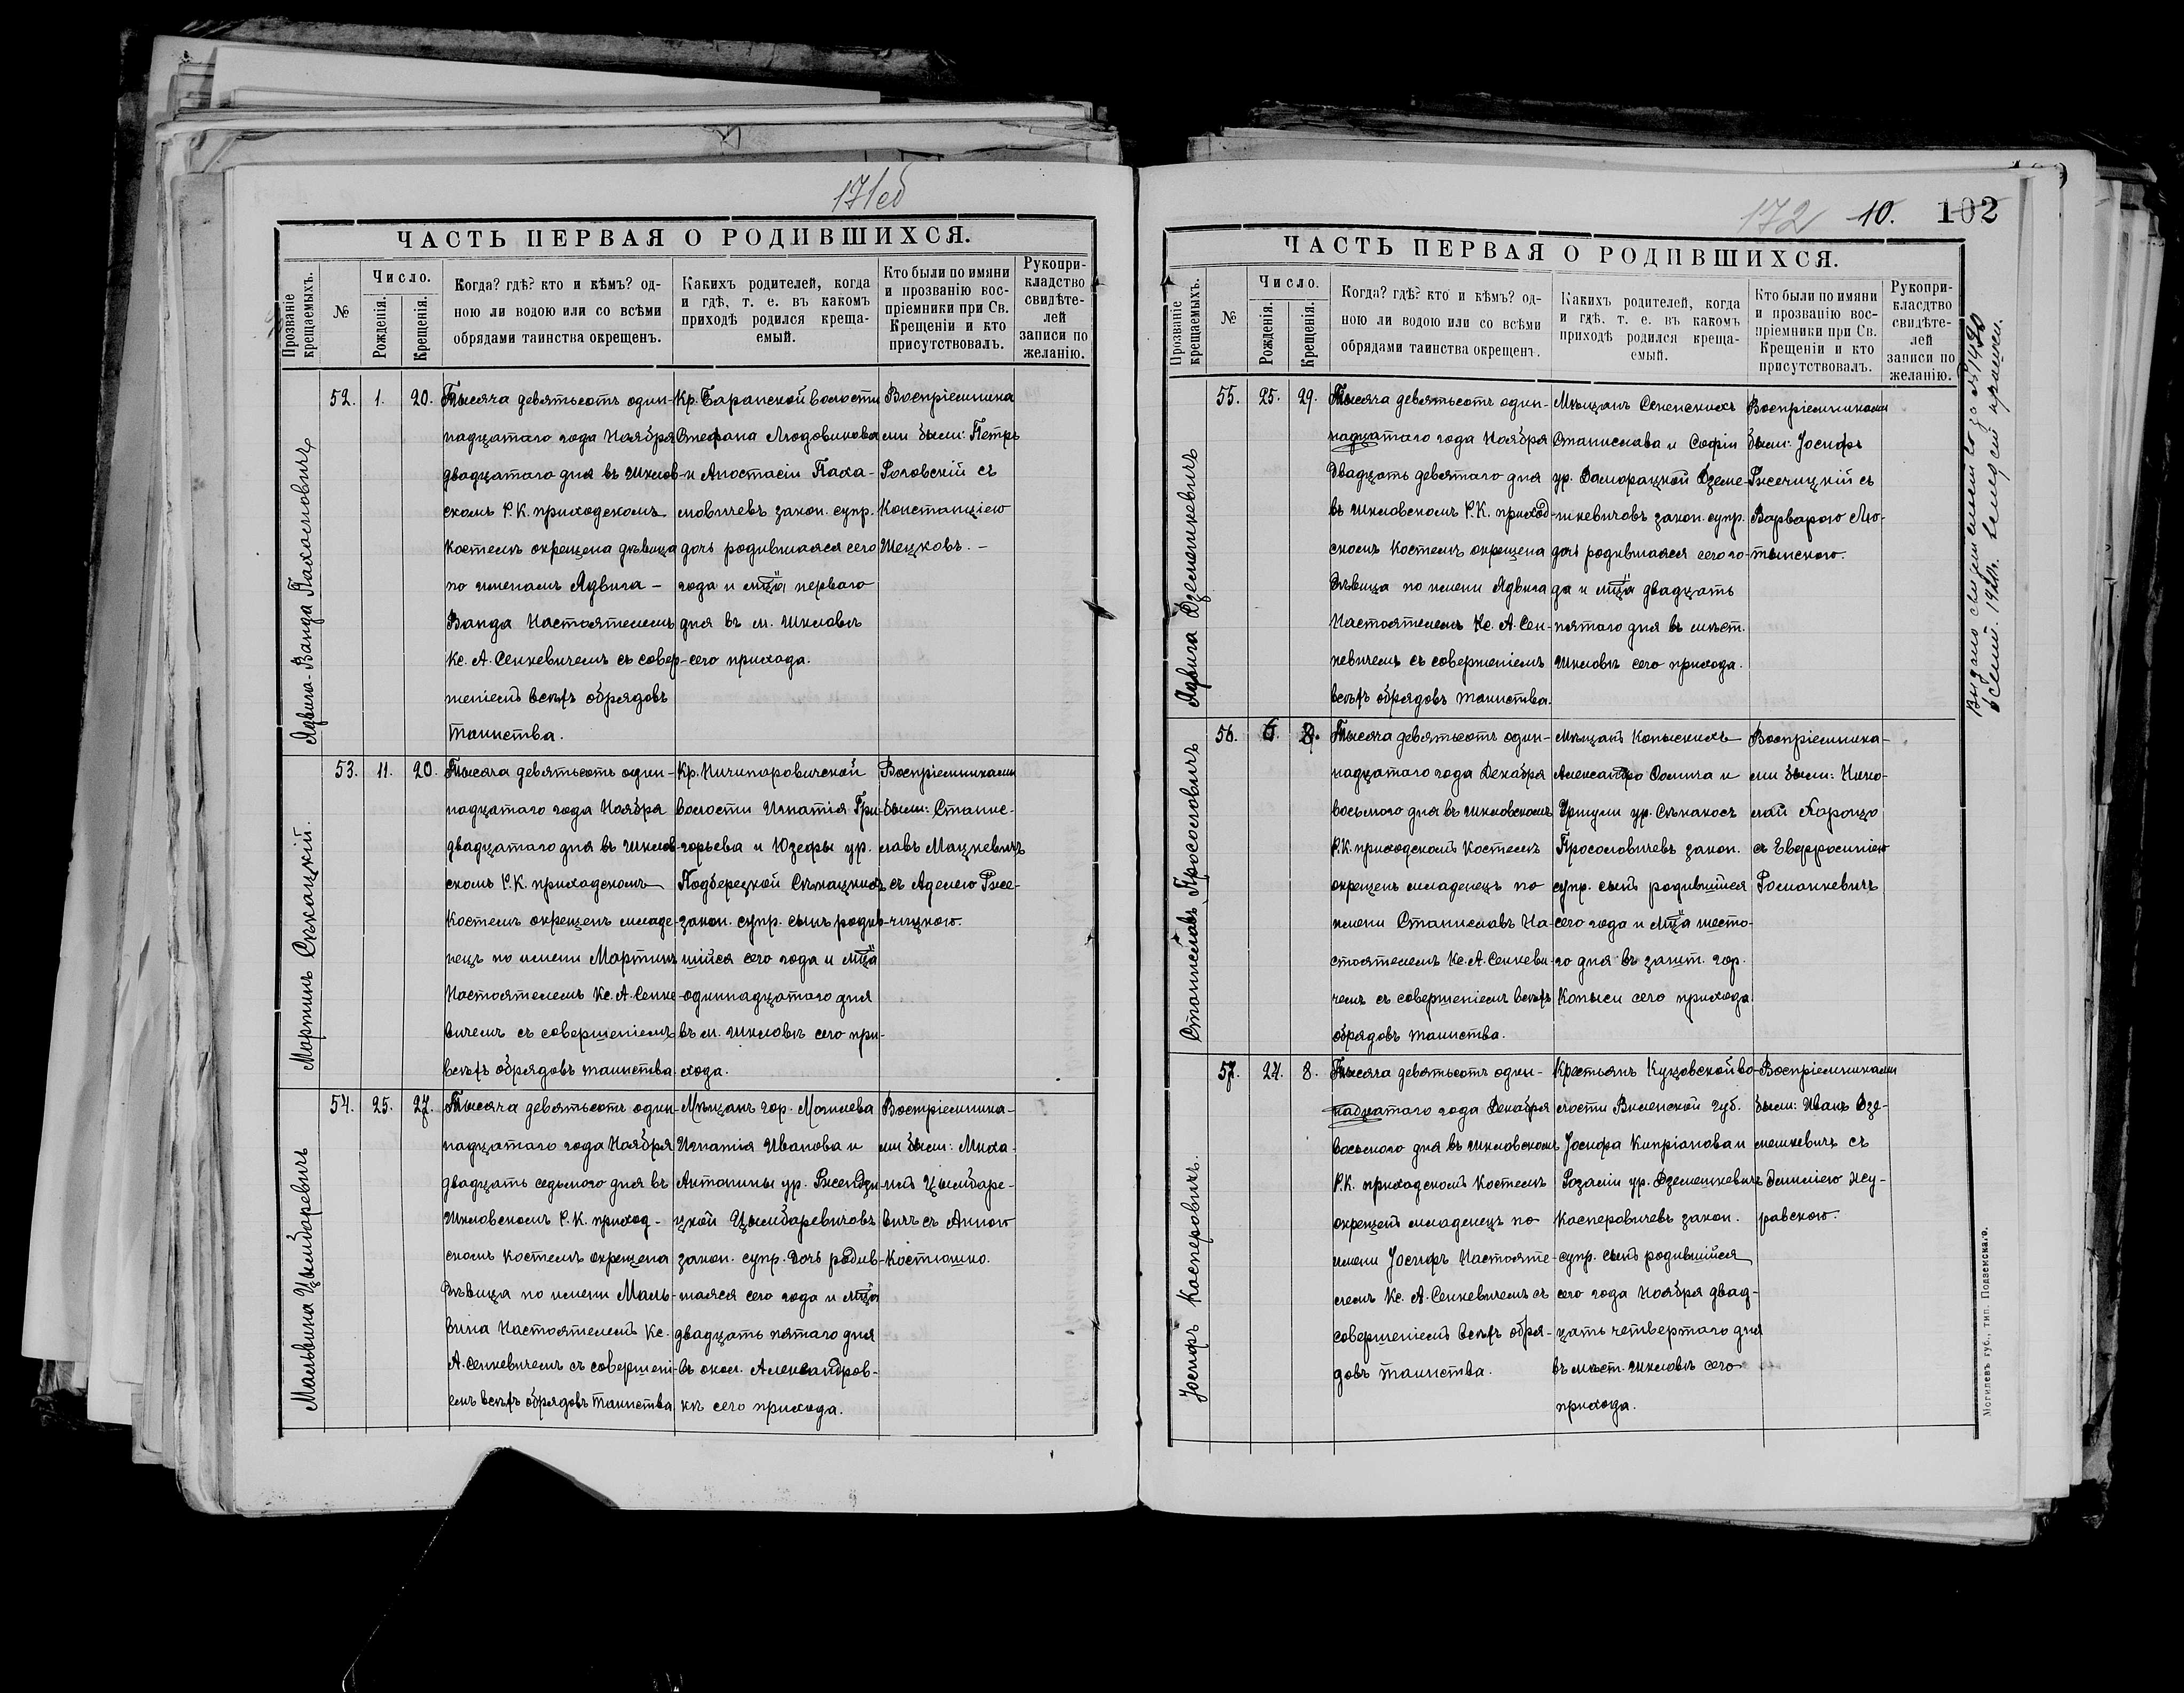 171об
ЧАСТЬ ПЕРВАЯ О РОДИВШИХСЯ.
Прозваніе крещаемыхъ.
№
Число.
Рожденія.
Крещенія.
Когда? гдѣ? кто и кѣмъ? од-
ною ли водою или со всѣми
обрядами таинства окрещенъ.
Какихъ родителей, когда
и гдѣ, т. е. въ какомъ
приходѣ родился креща-
емый.
Кто были по имяни
и прозванію вос-
пріемники при Св.
Крещеніи и кто
присутствовалъ.
Рукопри-
кладство
свидѣте-
лей
записи по
желанію.
Ядвига-Ванда Пахамовичъ
52. 1. 20.
Тысяча девятьсотъ один-
надцатаго года Ноября
двадцатаго дня въ Шклов-
скомъ Р.К. приходскомъ
Костелѣ окрещена дѣвица
по именамъ Ядвига –
Ванда Настоятелемъ
Кс. А. Сенкевичемъ съ совер-
шеніемъ всѣхъ обрядовъ
таинства.
Кр. Баранской волости
Стефана Людовикова
и Анастасіи Паха-
мовичевъ закон. супр.
дочь родившаяся сего
года и мца перваго
дня въ м. Шкловѣ
сего прихода.
Воспріемника
ми были: Петръ
Роговскій съ
Констанціею
Шецковъ. –
Мартинъ Сѣкацкій.
53. 11. 20.
Тысяча девятьсотъ один-
надцатаго года Ноября
двадцатаго дня въ Шклов-
скомъ Р.К. приходскомъ
Костелѣ окрещенъ младе-
нецъ по имени Мартинъ
Настоятелемъ Кс. А. Сенке-
вичемъ съ совершеніемъ
всѣхъ обрядовъ таинства.
Кр. Ничипоровичской
волости Игнатія Гри-
горьева и Юзефы ур.
Подберецкой Сѣкацкихъ
закон. супр. сынъ родив-
шійся сего года и мца
одиннадцатаго дня
въ м. Шкловѣ сего при-
хода.
Воспріемниками
были: Станис-
лавъ Мацкевичъ
съ Аделею Рже-
чицкою.
Мальвина Цымбаревичъ
54. 25. 27.
Тысяча девятьсотъ один-
надцатаго года Ноября
двадцать седьмого дня въ
Шкловскомъ Р.К. приход-
скомъ Костелѣ окрещена
Дѣвица по имени Маль-
вина Настоятелемъ Кс.
А. Сенкевичемъ съ совершені-
емъ всѣхъ обрядовъ таинства
Мѣщанъ гор. Могилева
Игнатія Иванова и
Антонины ур. Рженди-
цкой Цымбаревичовъ
закон. супр. Дочь родив-
шаяся сего года и мца
двадцать пятаго дня
въ окол. Александров-
кѣ сего прихода.
Воспріемника-
ми были: Миха-
илъ Цымбаре-
вичъ съ Анною
Костюшко.
172 10. 102
ЧАСТЬ ПЕРВАЯ О РОДИВШИХСЯ.
Прозваніе крещаемыхъ.
№
Число.
Рожденія.
Крещенія.
Когда? гдѣ? кто и кѣмъ? од-
ною ли водою или со всѣми
обрядами таинства окрещенъ.
Какихъ родителей, когда
и гдѣ, т. е. въ какомъ
приходѣ родился креща-
емый.
Кто были по имяни
и прозванію вос-
пріемники при Св.
Крещеніи и кто
присутствовалъ.
Рукопри-
класдтво
свидѣте-
лей
записи по
желанію.
Ядвига Дземешкевичъ
55. 25. 29.
Тысяча девятьсотъ один-
надцатаго года Ноября
Двадцать девятаго дня
въ Шкловскомъ Р.К. приход-
скомъ Костелѣ окрещена
Дѣвица по имени Ядвига
Настоятелемъ Кс. А. Сен-
кевичемъ съ совершеніемъ
всѣхъ обрядовъ таинства.
Мѣщанъ Сененскихъ
Станислава и Софіи
ур. Доморацкой Дземе-
шкевичовъ закон. супр.
дочь родившаяся сего го-
да и мца двадцать
пятаго дня въ мѣст.
Шкловѣ сего прихода.
Воспріемниками
были: Іосифъ
Ржечицкій съ
Варварою Лю-
тынскою.
Станиславъ Просоловичъ
56. 6. 8.
Тысяча девятьсотъ один-
надцатаго года Декабря
восьмого дня въ Шкловскомъ
Р.К. приходскомъ Костелѣ
окрещенъ младенецъ по
имени Станиславъ На-
стоятелемъ Кс. А. Сенкеви-
чемъ съ совершеніемъ всѣхъ
обрядовъ таинства.
Мѣщанъ Копыскихъ
Александра Фомича и
Уршули ур. Сѣнакосъ
Просоловичевъ закон.
супр. сынъ родившійся
сего года и мца шесто-
го дня въ зашт. гор.
Копыси сего прихода
Воспріемника-
ми были: Нико-
лай
съ Евфросиніею
Романкевичъ
Іосифъ Касперовичъ.
57. 24. 8.
Тысяча девятьсотъ один-
надцатаго года Декабря
восьмого дня въ Шкловскомъ
Р.К. приходскомъ Костелѣ
окрещенъ младенецъ по
имени Іосифъ Настояте-
лемъ Кс. А. Сенкевичемъ съ
совершеніемъ всѣхъ обря-
довъ таинства.
Крестьянъ Куцовской во-
лости Виленской губ.
Іосифа Кипріанова и
Розаліи ур. Дземешкевичъ
Касперовичевъ закон.
супр. сынъ родившійся
сего года Ноября двад-
цать четвертаго дня
въ мѣст. Шкловѣ сего
прихода.
Воспріемниками
были: Иванъ Дзе-
мешкевичъ съ
Эмиліею Жу-
равскою.
Могилевъ губ., тип. Подземскаго.